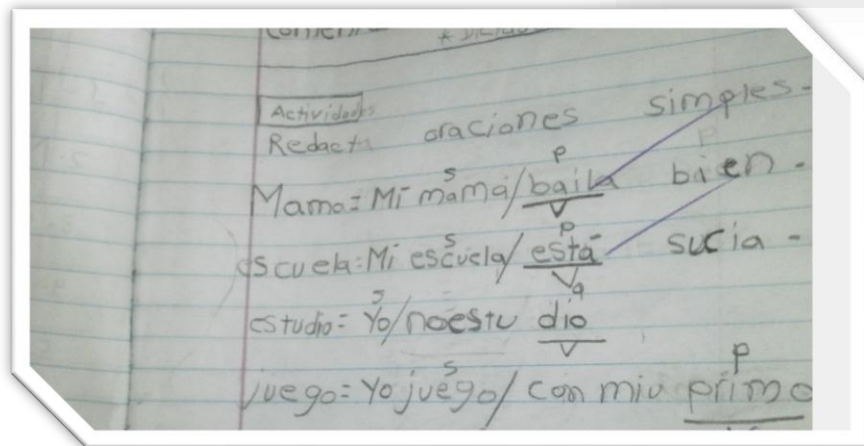 Actividades
Redacta oraciones simples.
s p
Mama= Mi mamá/baila bien.
v
s p
escuela= Mi escuela/está sucia-
v
s q
estudio= Yo/noestu dio
v
s p
juego= Yo juego/ con miu primo